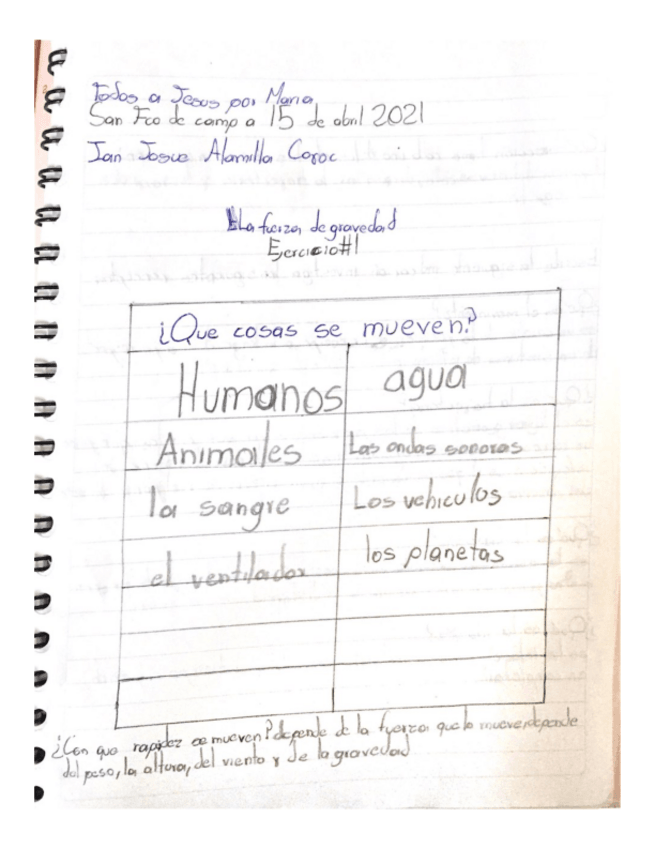 Todos a Jesus por Maria
San Fco de campo a 15 de abril 2021
Ian Josue Alamilla Coroc
La fuerza de gravedad
Ejercicio #1
¿Que cosas se mueven?
Humanos agua
Animales Las ondas sonoras
la sangre Los vehiculos
el ventilador los planetas
¿Con que rapidez se mueven? depende de la fuerza que lo mueve, depende
del peso, la altura, del viento y de la gravedad